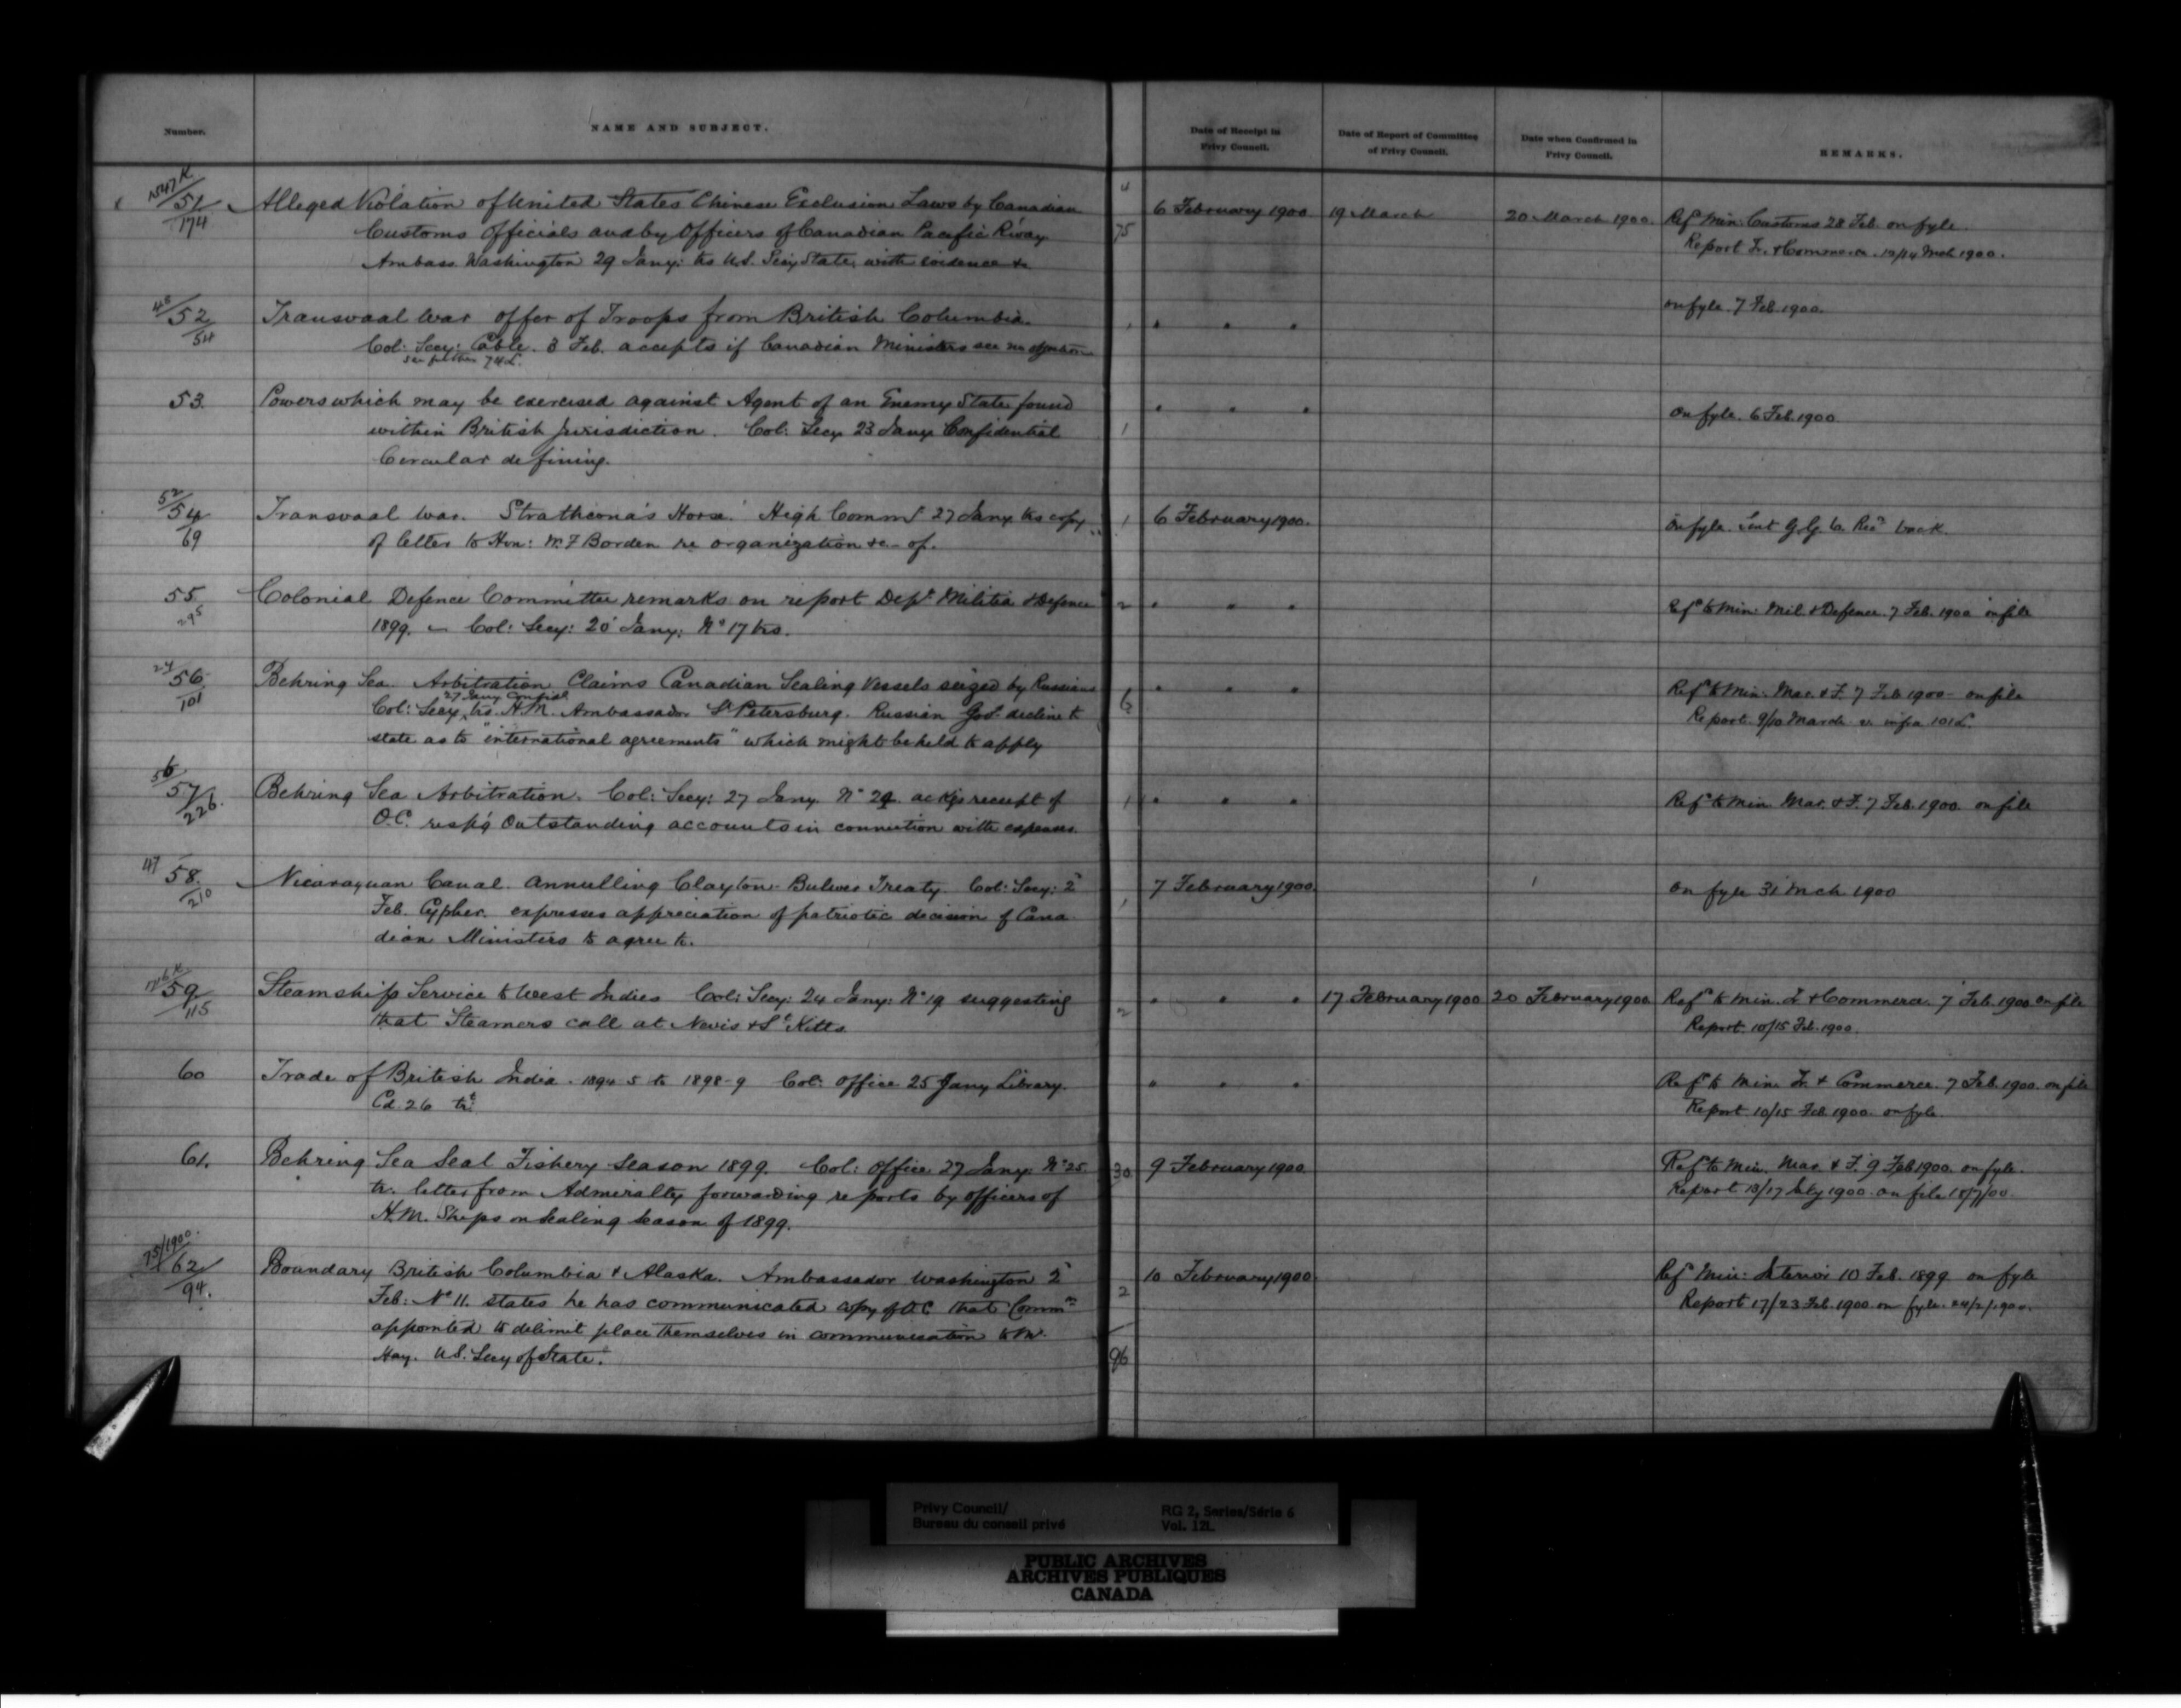 Number.
NAME AND SUBJECT.
Date of Receipt in Privy Council.
Date of Report of Committee of Privy Council.
Date when Confirmed in Privy Council.
REMARKS.
1547 K/51/174 Alleged Violation of United States Chinese Exclusion Laws by Canadian 75 6 February 1900 19 March 20 March 1900 Refd Min: Customs 28 Feb. on fyle.
Customs Officials and by Officers of Canadian Pacific R'way Report Tr. & Commerce. 12/14 Mch 1900.
Ambass. Washington 29 Jany: trs U.S. Secy State, with evidence &c
48/52/54 Transvaal War offer of Troops from British Columbia. 1 " " " on fyle. 7 Feb. 1900.
Col: Secy: Cable. 3 Feb. accepts if Canadian Ministers see no objection
see further 74 L.
53. Powers which may be exercised against Agent of an Enemy State found " " " on fyle. 6 Feb. 1900
within British Jurisdiction. Col: Secy 23 Jany Confidential 1
Circular defining.
52/54/69 Transvaal War. Strathcona's Horse. High Commr 27 Jany trs copy 1 6 February 1900. on fyle. Sent G.G. Recd back.
of letter to Hon: Mr. F Borden re organization &c - of.
55 295 Colonial Defence Committee remarks on report Dept Militia & Defence 2 " " " Refd to Min: Mil. & Defence. 7 Feb. 1900 on file
1899. - Col: Secy: 20 Jany: No 17 trs.
24/56/101 Behring Sea. Arbitration Claims Canadian Sealing Vessels seized by Russians 6 " " " Refd to Min: Mar. & F. 7 Feb 1900 - on file
27 Jany Confid
Col: Secy, trs. H.M. Ambassador St Petersburg. Russian Govt decline to Report. 9/10 March v. infra 101 L.
state as to "international agreements" which might be held to apply
56/57/226. Behring Sea Arbitration. Col: Secy: 27 Jany. No 24. ackgs receipt of 1 " " " Refd to Min Mar. & F. 7 Feb. 1900. on file
O.C. resp'g Outstanding accounts in connection with expenses.
47 58. 210 Nicaraguan Canal. Annulling Clayton-Bulwer Treaty. Col: Secy: 2 7 February 1900. on fyle 31 Mch 1900
Feb. Cypher. expresses appreciation of patriotic decision of Cana 1
dian Ministers to agree to.
59/115 Steamship Service to West Indies Col: Secy: 24 Jany: No 19 suggesting 2 " " " 17 February 1900 20 February 1900 Refd to Min. Tr. & Commerce. 7 Feb. 1900 on file
that Steamers call at Nevis & St Kitts Report. 10/15 Feb. 1900.
60 Trade of British India. 1894-5 to 1898-9 Col: Office 25 Jany Library. " " " Refd to Min. Tr. & Commerce. 7 Feb. 1900. on file
Cd. 26 trs Report 10/15 Feb. 1900. on fyle.
61. Behring Sea Seal Fishery Season 1899. Col: Office 27 Jany: No 25 30 9 February 1900 Refd to Min. Mar. & F. 9 Feb 1900. on fyle.
tr. letter from Admiralty forwarding reports by officers of Report 13/17 July 1900. on file 18/7/00.
H.M. Ships on Sealing Season of 1899.
75/1900. 62/94. Boundary British Columbia & Alaska. Ambassador Washington 2 2 10 February 1900. Refd Min: Interior 10 Feb. 1899 on fyle
Feb: No 11. states he has communicated copy of O.C. that Commrs Report 17/23 Feb. 1900. on fyle. 24/2/1900.
appointed to delimit place themselves in communication to Mr.
Hay. U.S. Secy of State. 96
Privy Council/
Bureau du conseil privé
RG 2, Series/Série 6
Vol. 12L
PUBLIC ARCHIVES
ARCHIVES PUBLIQUES
CANADA